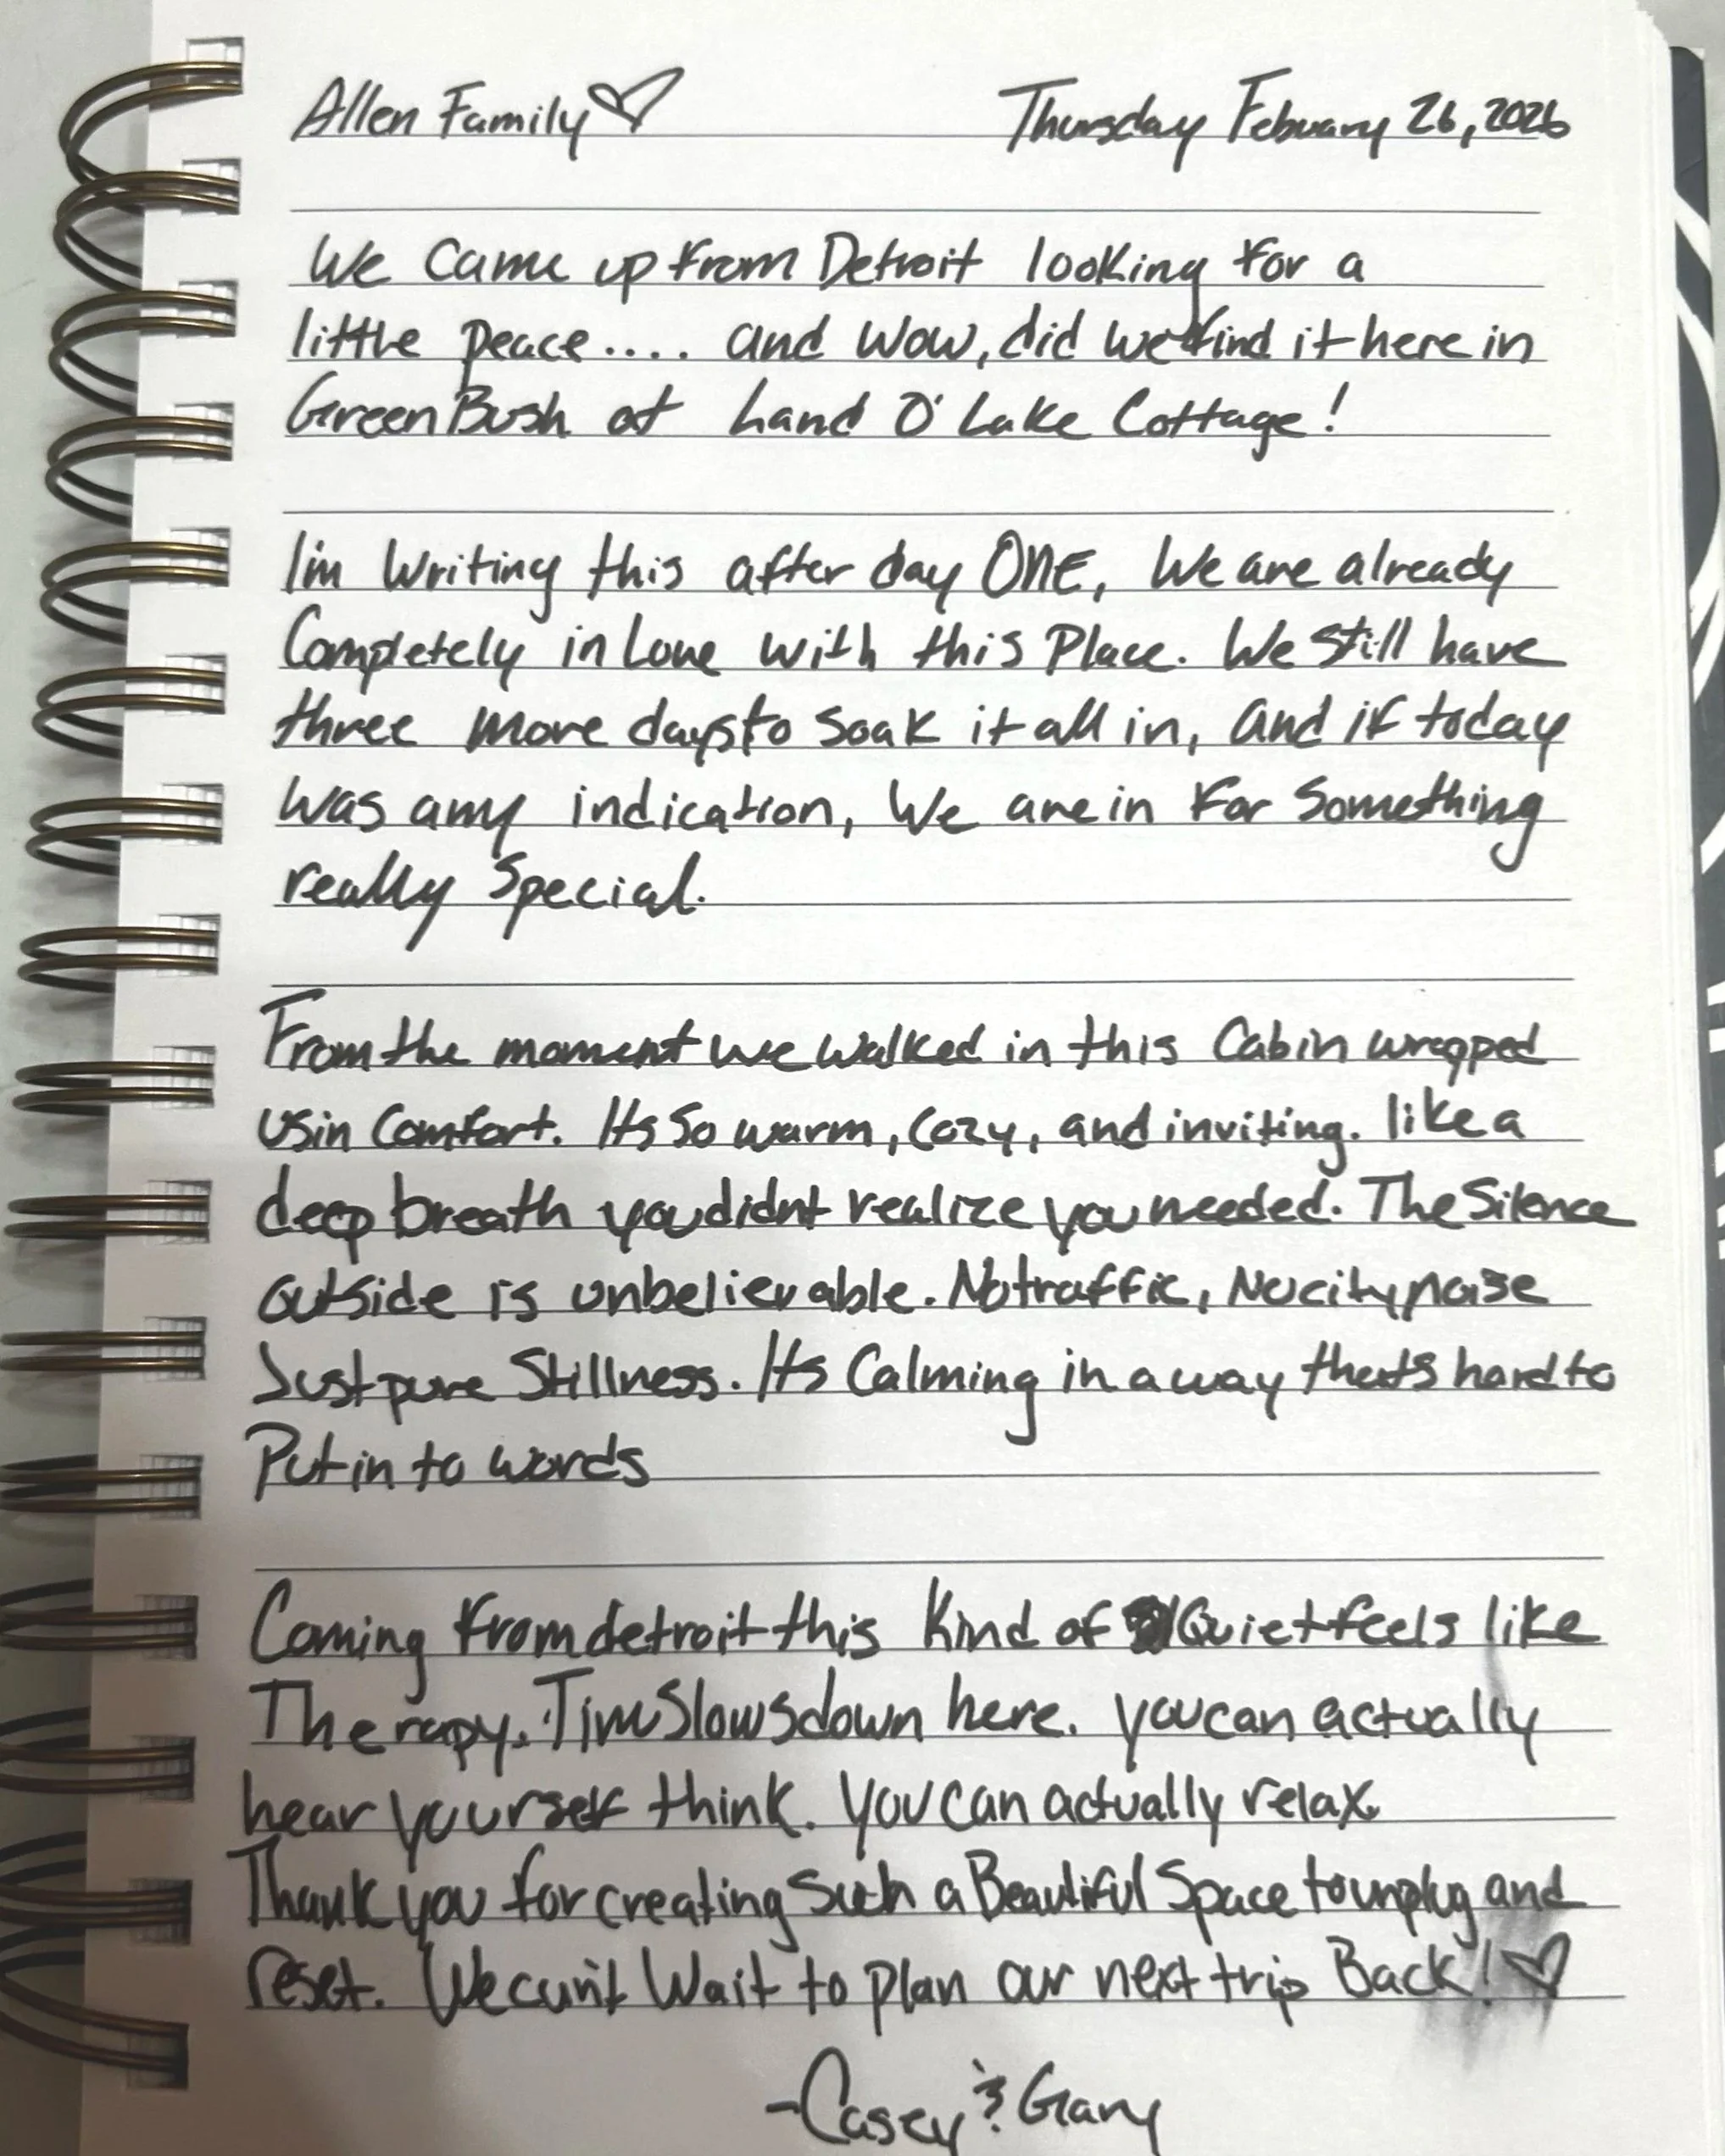 Allen Family♡ Thursday Febuary 26, 2026
We came up from Detroit looking for a
little peace.... and wow, did we find it here in
GreenBush at Land O' Lake Cottage!
I'm writing this after day ONE, We are already
Completely in Love with this Place. We still have
three more days to soak it all in, and if today
was any indication, we are in for something
really special.
From the moment we walked in this Cabin wrapped
us in comfort. Its so warm, cozy, and inviting. like a
deep breath you didnt realize you needed. The Silence
outside is unbelievable. No traffic, No city noise
Just pure Stillness. Its Calming in a way thats hard to
Put in to words
Coming from detroit this kind of Quiet feels like
Therapy. Time Slows down here. you can actually
hear yourself think. you can actually relax.
Thank you for creating such a Beautiful Space to unplug and
reset. We can't Wait to plan our next trip Back! ♡
-Casey & Gary